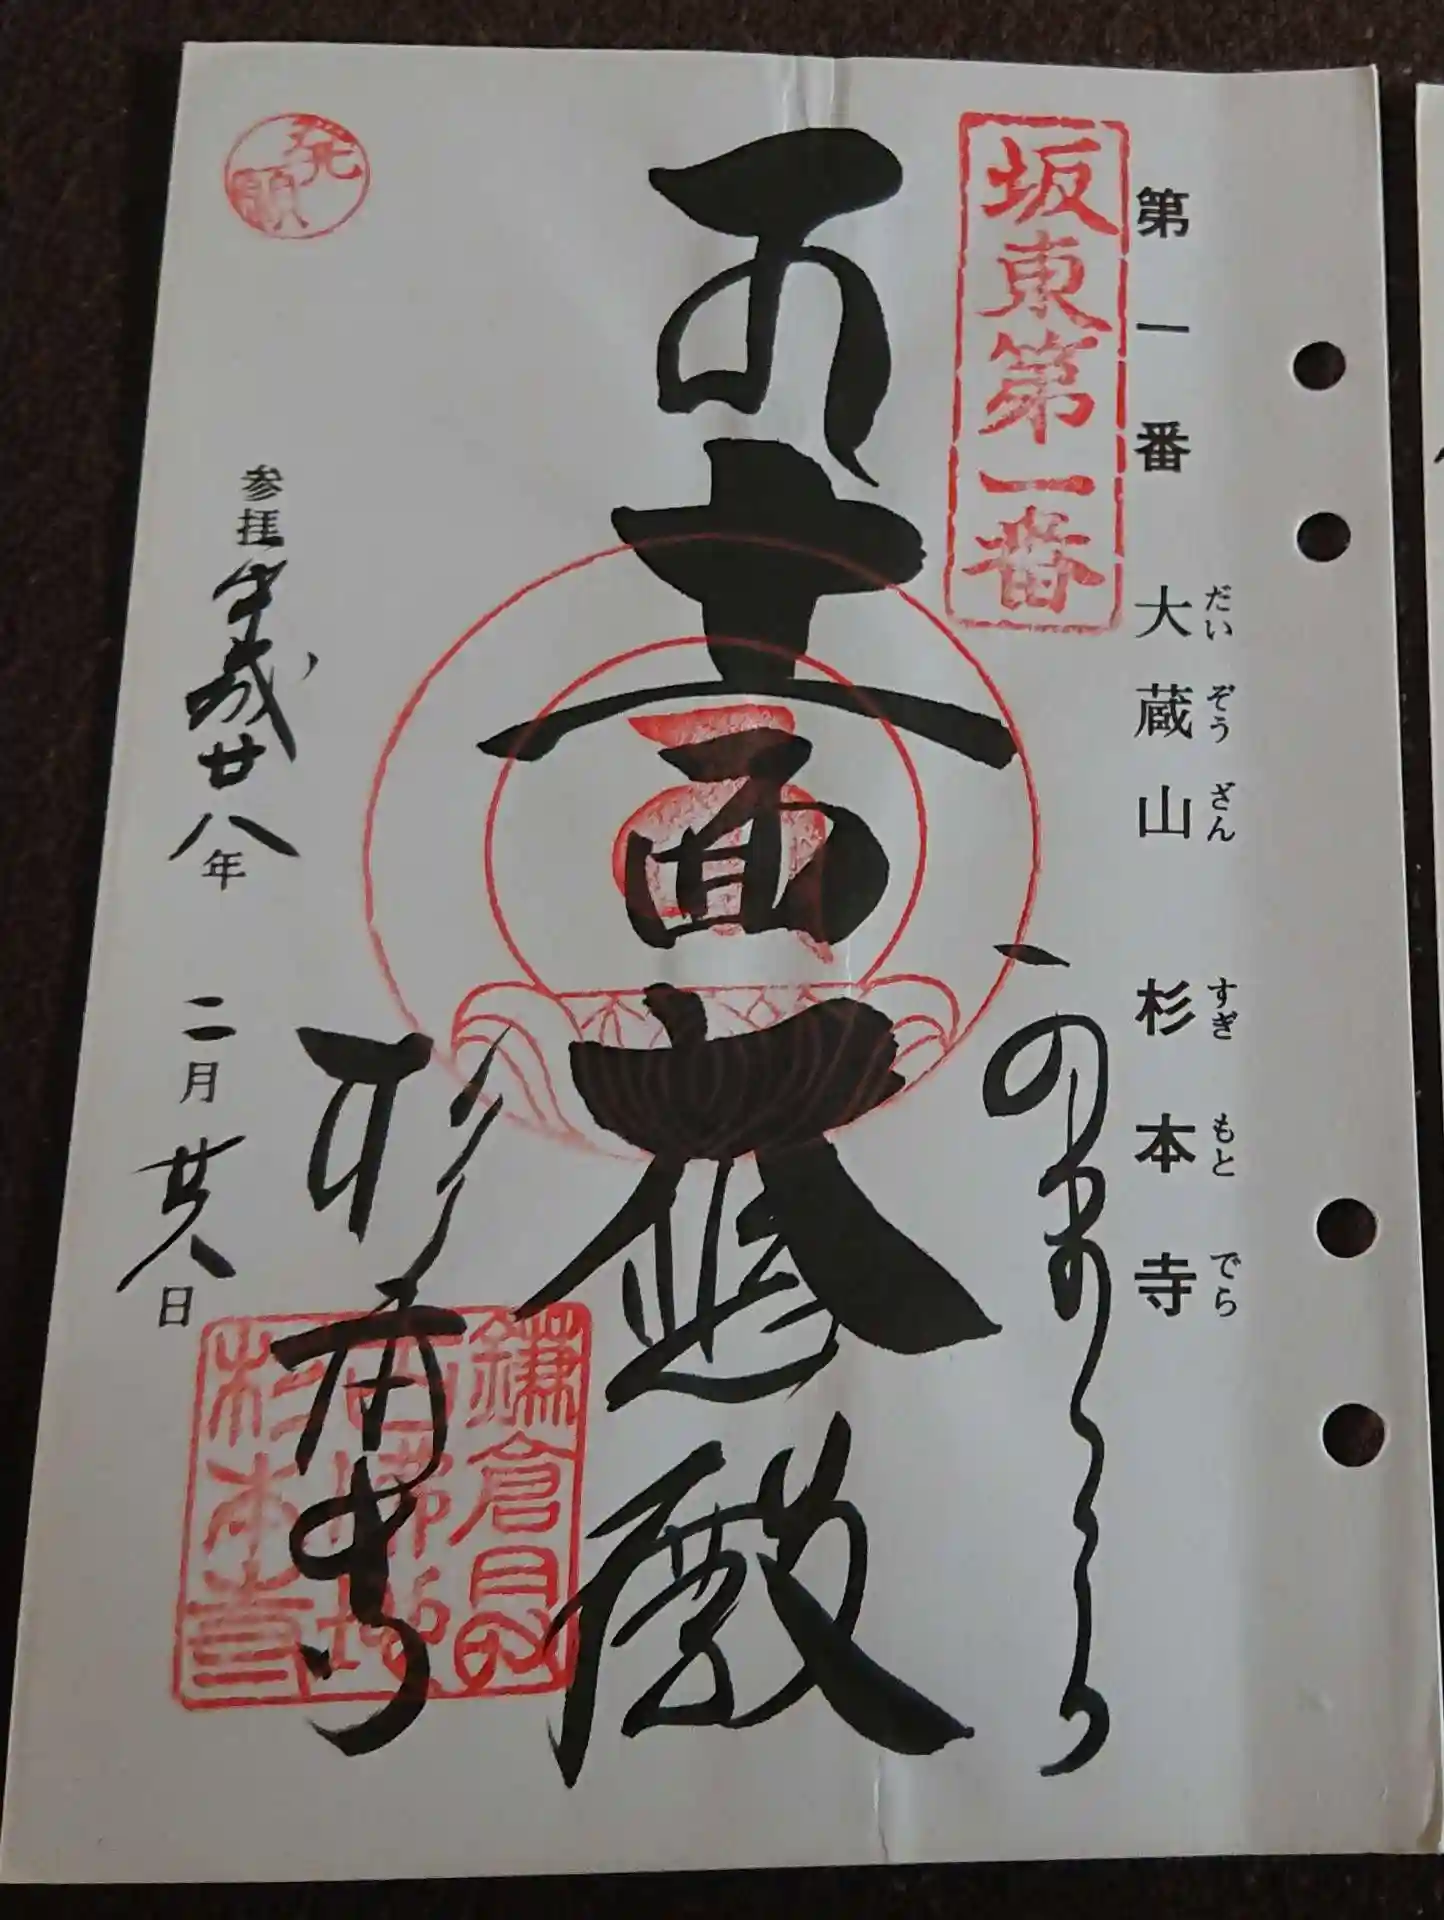 第一番 大蔵山 杉本寺
だいぞうざん すぎもとでら
坂東第一番
十一面大悲殿
杉本寺
鎌倉
杉本寺
参拝 平成廿八年 二月 廿八日
発願